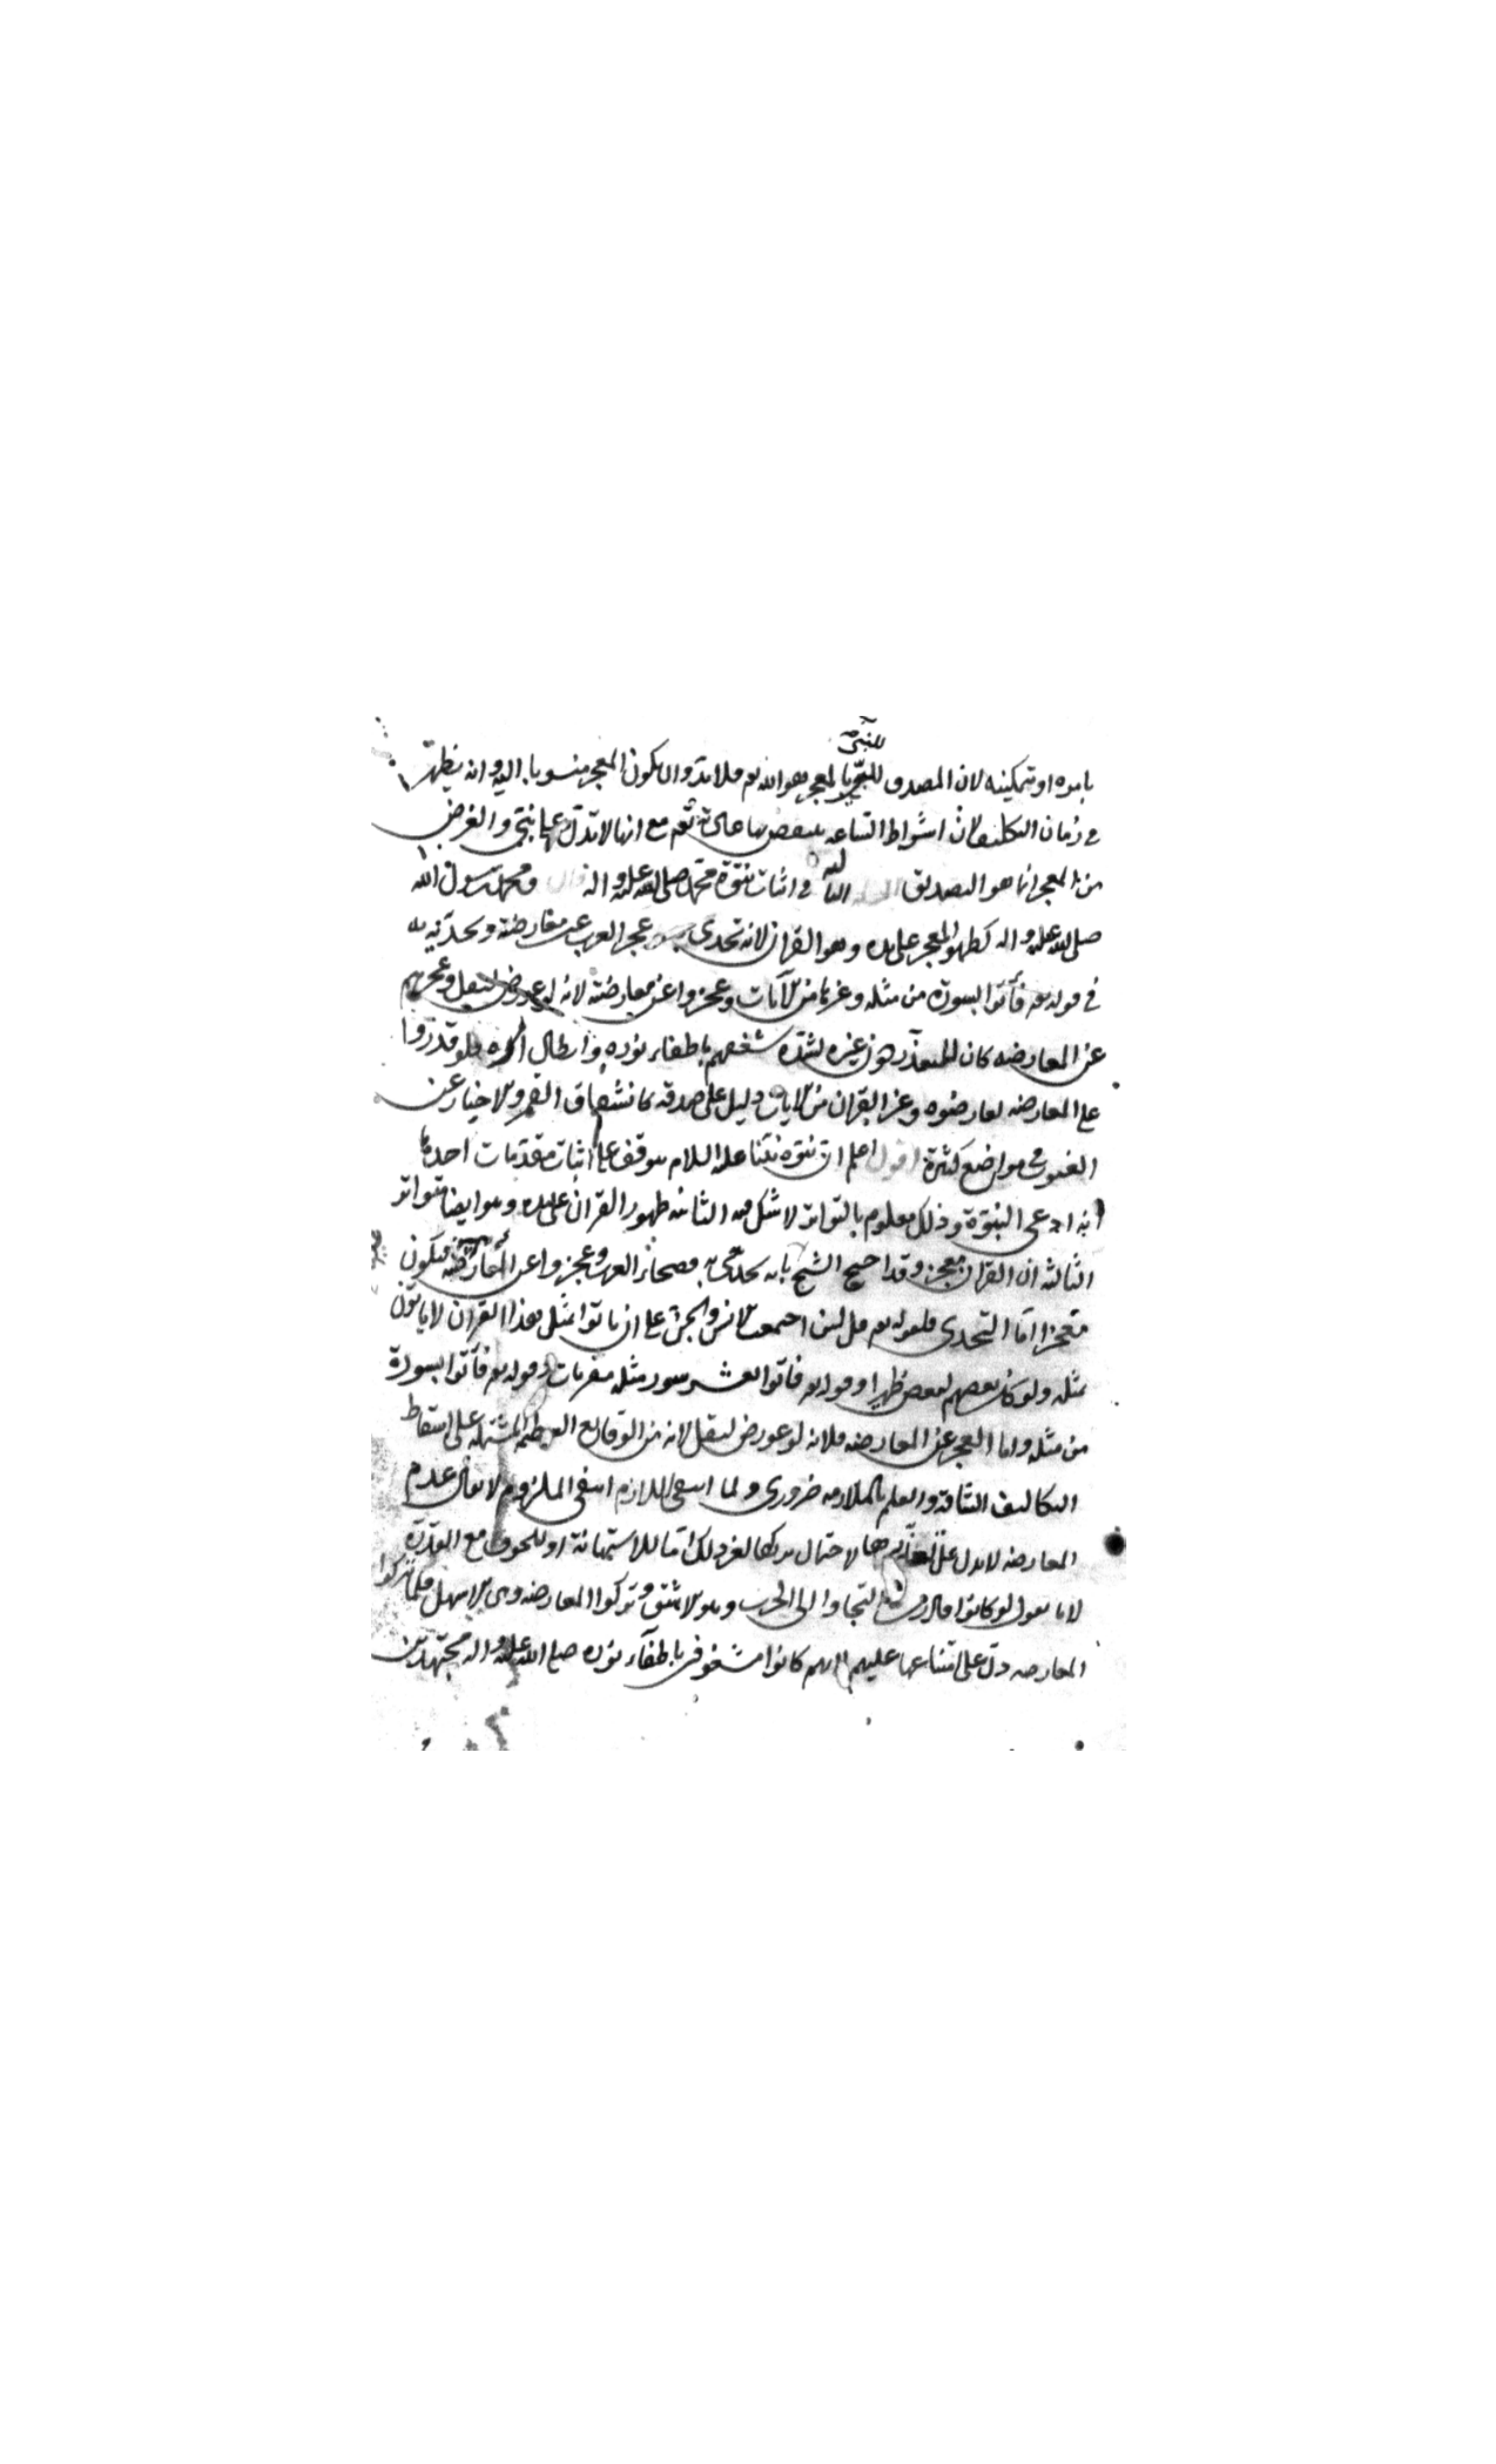 للنبي
بامره او تمكينه لان المصدق بالمعجز هو الله تع فلا بد وان يكون المعجز منسوبا اليه وان يظهر
في زمان التكليف لان اشراط الساعه ينقض بها عادته تع مع انها لا تدل على نبي والغرض
من المعجز انما هو التصديق في اثبات نبوة محمد صلى الله عليه واله ومحمد رسول الله
صلى الله عليه واله لظهور المعجز على يده وهو القران لانه تحدى به وعجز العرب عن معارضته وتحديه به
في قوله تع فأتوا بسورة من مثله وغرها من الآيات وعجزوا عن معارضته لانه لو عورض لنقل وعجزهم
عن المعارضه كان للتعذر دون غيره لشدة شغفهم باطفاء نوره وابطال امره فلو قدروا
على المعارضه لعارضوه وغر القران من الايات دليل على صدقه كانشقاق القمر والاخبار عن
الغيوب في مواضع كثيرة اقول اعلم ان نبوة نبينا عليه السلام يتوقف على اثبات مقدمات احدها
انه ادعى النبوة وذلك معلوم بالتواتر لا شك فيه الثانيه ظهور القران على يده وهو ايضا متواتر
الثالثه ان القران معجز وقد احتج الشيخ بانه تحدى به فصحاء العرب وعجزوا عن المعارضه فيكون
معجزا اما التحدي فلقوله تع قل لئن اجتمعت الانس والجن على ان ياتوا بمثل هذا القران لا ياتون
بمثله ولو كان بعضهم لبعض ظهيرا وقوله تع فاتوا بعشر سور مثله مفتريات وقوله تع فأتوا بسورة
من مثله واما العجز عن المعارضه فلانه لو عورض لنقل لانه من الوقايع العظيمه المشتمله على اسقاط
التكاليف الشاقه والعلم بالملازمه ضروري ولما انتفى اللازم انتفى الملزوم لا يقال عدم
المعارضه لا يدل على تعذرها لاحتمال تركها لغير ذلك اما للاستهانة او للخوف مع القدرة
لانا نقول لو كانوا قادرين لما التجاوا الى الحرب وهو الاشق وتركوا المعارضه وهي الاسهل فلما تركوا
المعارضه دل على امتناعها عليهم لانهم كانوا مشغوفين باطفآء نوره صلى الله عليه واله مجتهدين